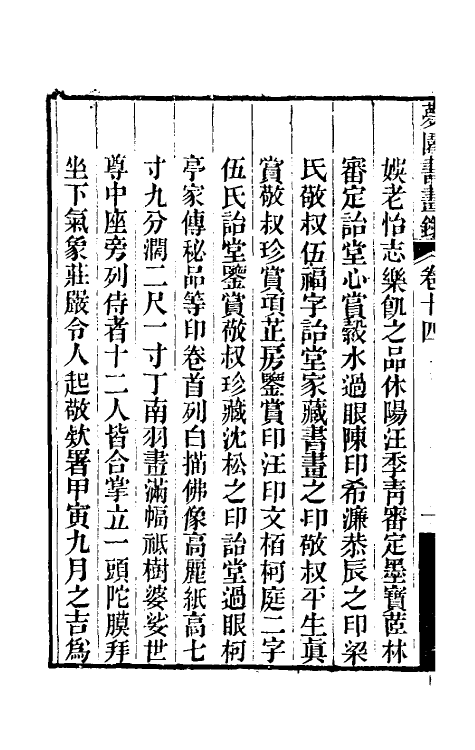 夢園書畫錄 卷十四 一
娛老怡志樂飢之品休陽汪季靑審定墨寶蓙林
審定詒堂心賞縠水過眼陳印希濂恭辰之印梁
氏敬叔伍福字詒堂家藏書畫之印敬叔平生眞
賞敬叔珍賞項芷房鑒賞印汪印文栢柯庭二字
伍氏詒堂鑒賞敬叔珍藏沈松之印詒堂過眼柯
亭家傳秘品等印卷首列白描佛像高麗紙高七
寸九分濶二尺一寸丁南羽畫滿幅祗樹婆娑世
尊中座旁列侍者十二人皆合掌立一頭陀膜拜
坐下氣象莊嚴令人起敬欵署甲寅九月之吉爲